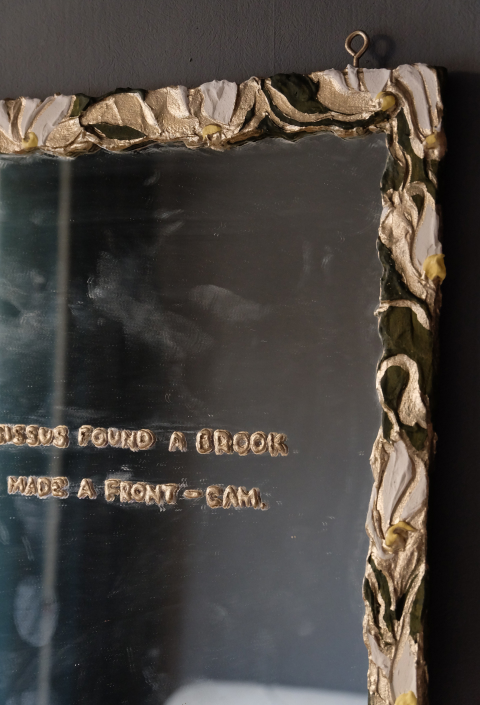 ISSUS FOUND A BROOK
MADE A FRONT-CAM.